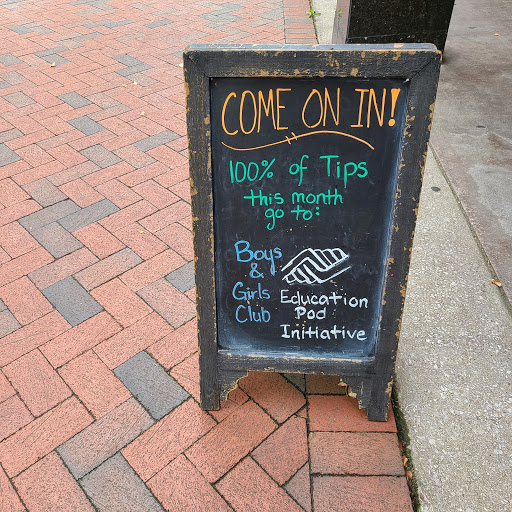 COME ON IN!
100% of Tips
this month
go to:
Boys
&
Girls
Club
Education
Pod
Initiative